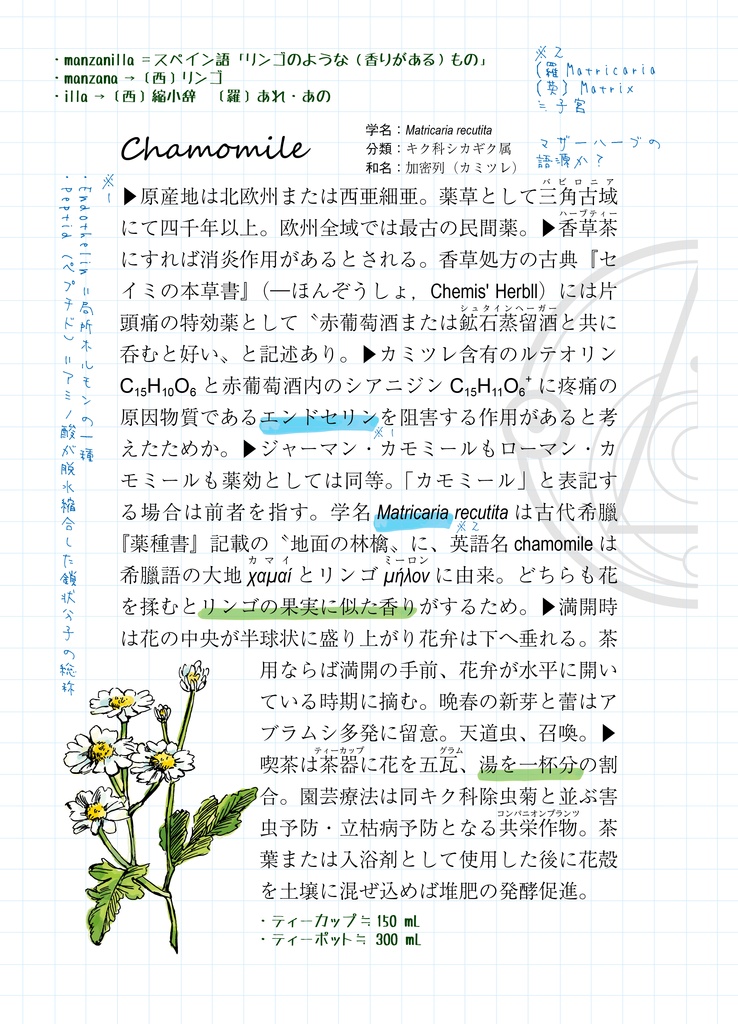 ・manzanilla ＝スペイン語「リンゴのような（香りがある）もの」
・manzana →〔西〕リンゴ
・illa →〔西〕縮小辞　〔羅〕あれ・あの
※2
〔羅〕Matricaria
〔英〕Matrix
≒子宮
マザーハーブの
語源か？
Chamomile
学名：Matricaria recutita
分類：キク科シカギク属
和名：加密列（カミツレ）
※1
・Endothelin＝局所ホルモンの一種
・Peptid（ペプチド）＝アミノ酸が脱水縮合した鎖状分子の総称
バビロニア
▶原産地は北欧州または西亜細亜。薬草として三角古域
ハーブティー
にて四千年以上。欧州全域では最古の民間薬。▶香草茶
にすれば消炎作用があるとされる。香草処方の古典『セ
イミの本草書』（―ほんぞうしょ，Chemis' Herbll）には片
シュタインヘーガー
頭痛の特効薬として〝赤葡萄酒または鉱石蒸留酒と共に
呑むと好い〟と記述あり。▶カミツレ含有のルテオリン
C₁₅H₁₀O₆ と赤葡萄酒内のシアニジン C₁₅H₁₁O₆⁺ に疼痛の
原因物質であるエンドセリンを阻害する作用があると考
※1
えたためか。▶ジャーマン・カモミールもローマン・カ
モミールも薬効としては同等。「カモミール」と表記す
る場合は前者を指す。学名 Matricaria recutita は古代希臘
※2
『薬種書』記載の〝地面の林檎〟に、英語名 chamomile は
カマイ　ミーロン
希臘語の大地 χαμαί とリンゴ μήλον に由来。どちらも花
を揉むとリンゴの果実に似た香りがするため。▶満開時
は花の中央が半球状に盛り上がり花弁は下へ垂れる。茶
用ならば満開の手前、花弁が水平に開い
ている時期に摘む。晩春の新芽と蕾はア
ブラムシ多発に留意。天道虫、召喚。▶
ティーカップ　グラム
喫茶は茶器に花を五瓦、湯を一杯分の割
合。園芸療法は同キク科除虫菊と並ぶ害
コンパニオンプランツ
虫予防・立枯病予防となる共栄作物。茶
葉または入浴剤として使用した後に花殻
を土壌に混ぜ込めば堆肥の発酵促進。
・ティーカップ≒ 150 mL
・ティーポット≒ 300 mL